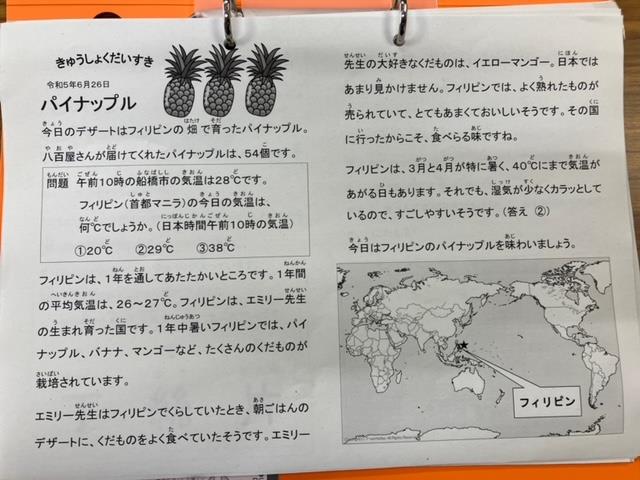 きゅうしょくだいすき
令和5年6月26日
パイナップル
今日のデザートはフィリピンの畑で育ったパイナップル。
八百屋さんが届けてくれたパイナップルは、54個です。
問題 午前10時の船橋市の気温は28℃です。
フィリピン(首都マニラ)の今日の気温は、
何℃でしょうか。(日本時間午前10時の気温)
①20℃ ②29℃ ③38℃
フィリピンは、1年を通してあたたかいところです。1年間
の平均気温は、26~27℃。フィリピンは、エミリー先生
の生まれ育った国です。1年中暑いフィリピンでは、パイ
ナップル、バナナ、マンゴーなど、たくさんのくだものが
栽培されています。
エミリー先生はフィリピンでくらしていたとき、朝ごはんの
デザートに、くだものをよく食べていたそうです。エミリー
先生の大好きなくだものは、イエローマンゴー。日本では
あまり見かけません。フィリピンでは、よく熟れたものが
売られていて、とてもあまくておいしいそうです。その国
に行ったからこそ、食べらる味ですね。
フィリピンは、3月と4月が特に暑く、40℃にまで気温が
あがる日もあります。それでも、湿気が少なくカラッとして
いるので、すごしやすいそうです。(答え ②)
今日はフィリピンのパイナップルを味わいましょう。
フィリピン